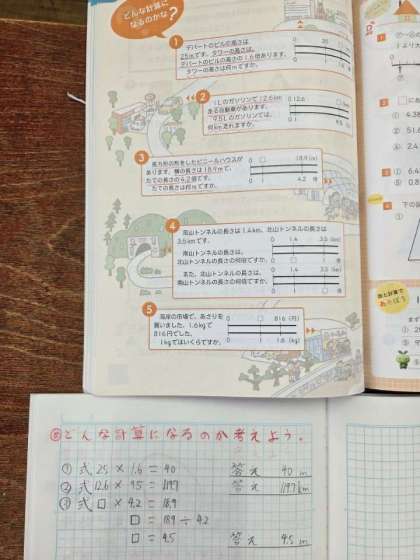 どんな計算に
なるのかな?
1 デパートのビルの高さは
25mです。タワーの高さは、
デパートのビルの高さの1.6倍あります。
タワーの高さは何mですか。
0 25
0 1 1.6
2 1Lのガソリンで12.6km
走る自動車があります。
9.5Lのガソリンでは、
何km走れますか。
0 12.6
0 1 9.5
3 長方形の形をしたビニールハウスが
あります。横の長さは18.9mで、
たての長さの4.2倍です。
たての長さは何mですか。
0 □ 18.9(m)
0 1 4.2 倍
4 南山トンネルの長さは1.4km、北山トンネルの長さは
3.5kmです。
南山トンネルの長さは、
北山トンネルの長さの何倍ですか。
また、北山トンネルの長さは、
南山トンネルの長さの何倍ですか。
0 1.4 3.5(km)
0 □ 1 倍
0 1.4 3.5(km)
0 1 □ 倍
5 海岸の市場で、あさりを
買いました。1.6kgで
816円でした。
1kgではいくらですか。
0 □ 816(円)
0 1 1.6(kg)
どんな計算になるのか考えよう。
① 式 25 × 1.6 = 40 答え 40 m
② 式 12.6 × 9.5 = 119.7 答え 119.7 km
③ 式 □ × 4.2 = 18.9
□ = 18.9 ÷ 4.2
□ = 4.5 答え 4.5 m